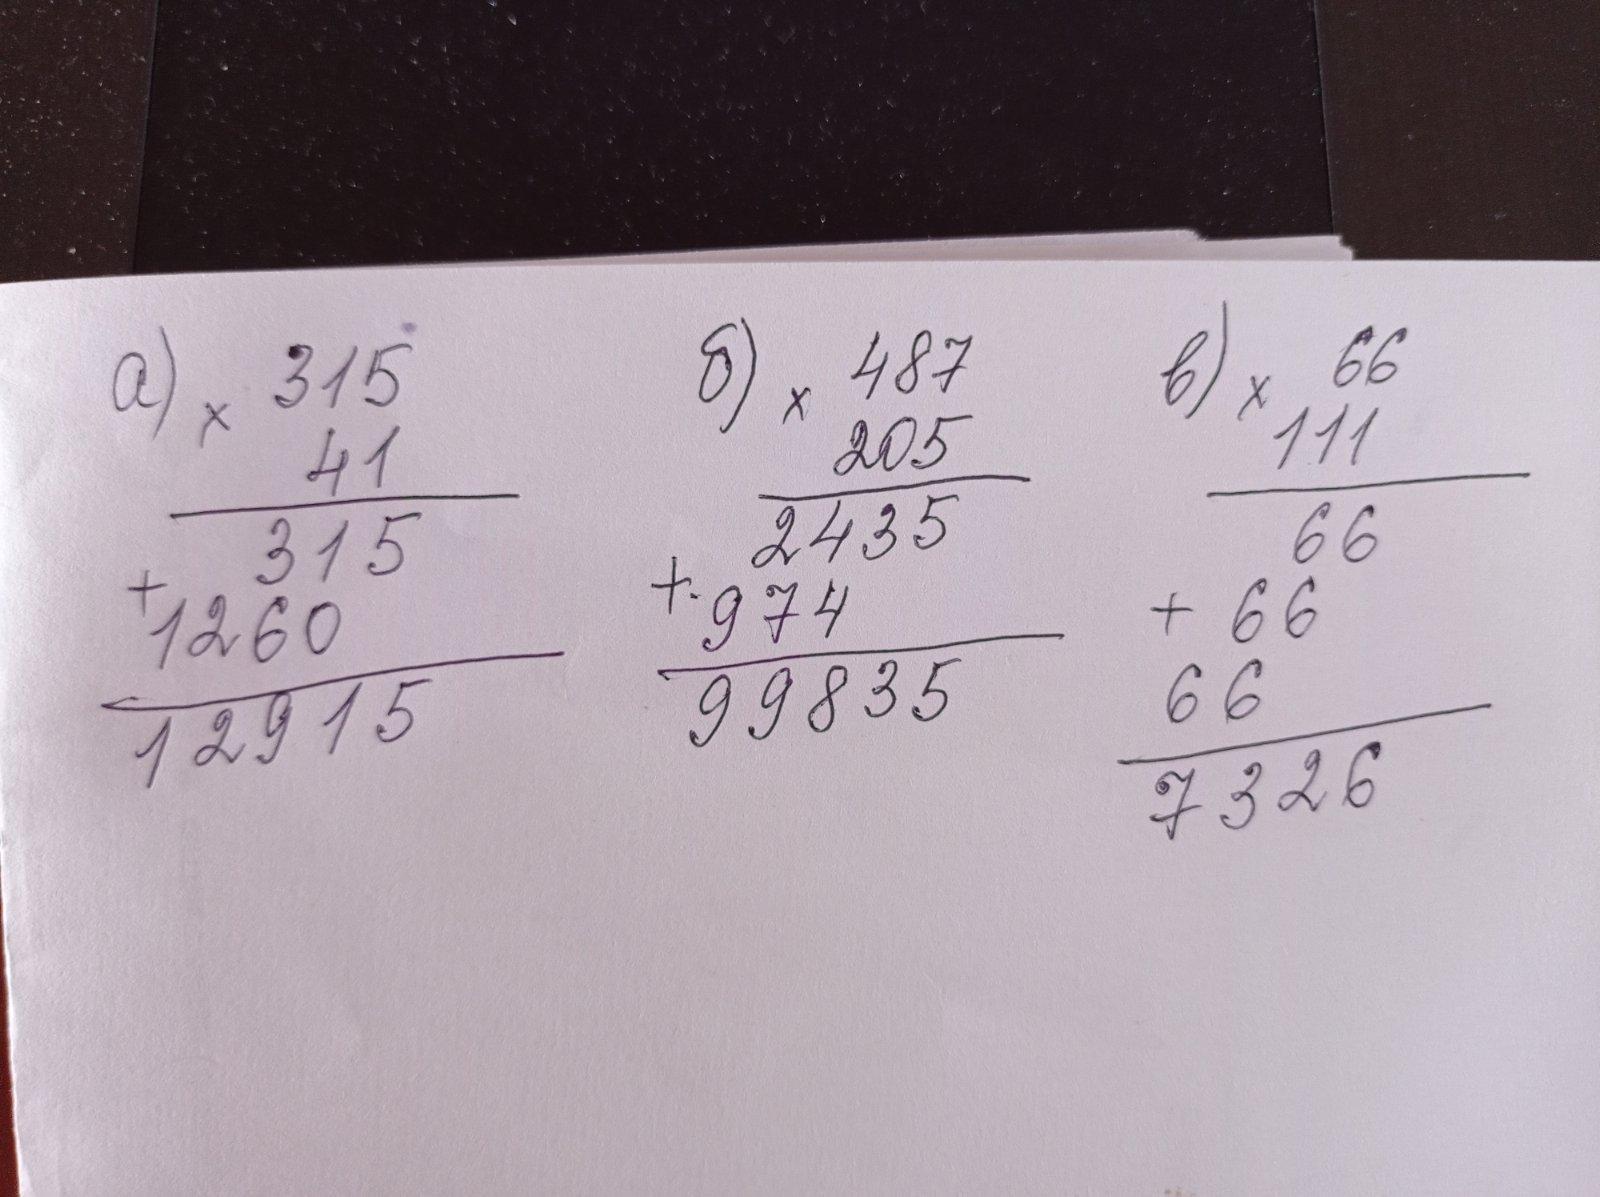 а) x 315
41
315
+
1260
12915
б) x 487
205
2435
+
974
99835
в) x 66
111
66
+ 66
66
7326